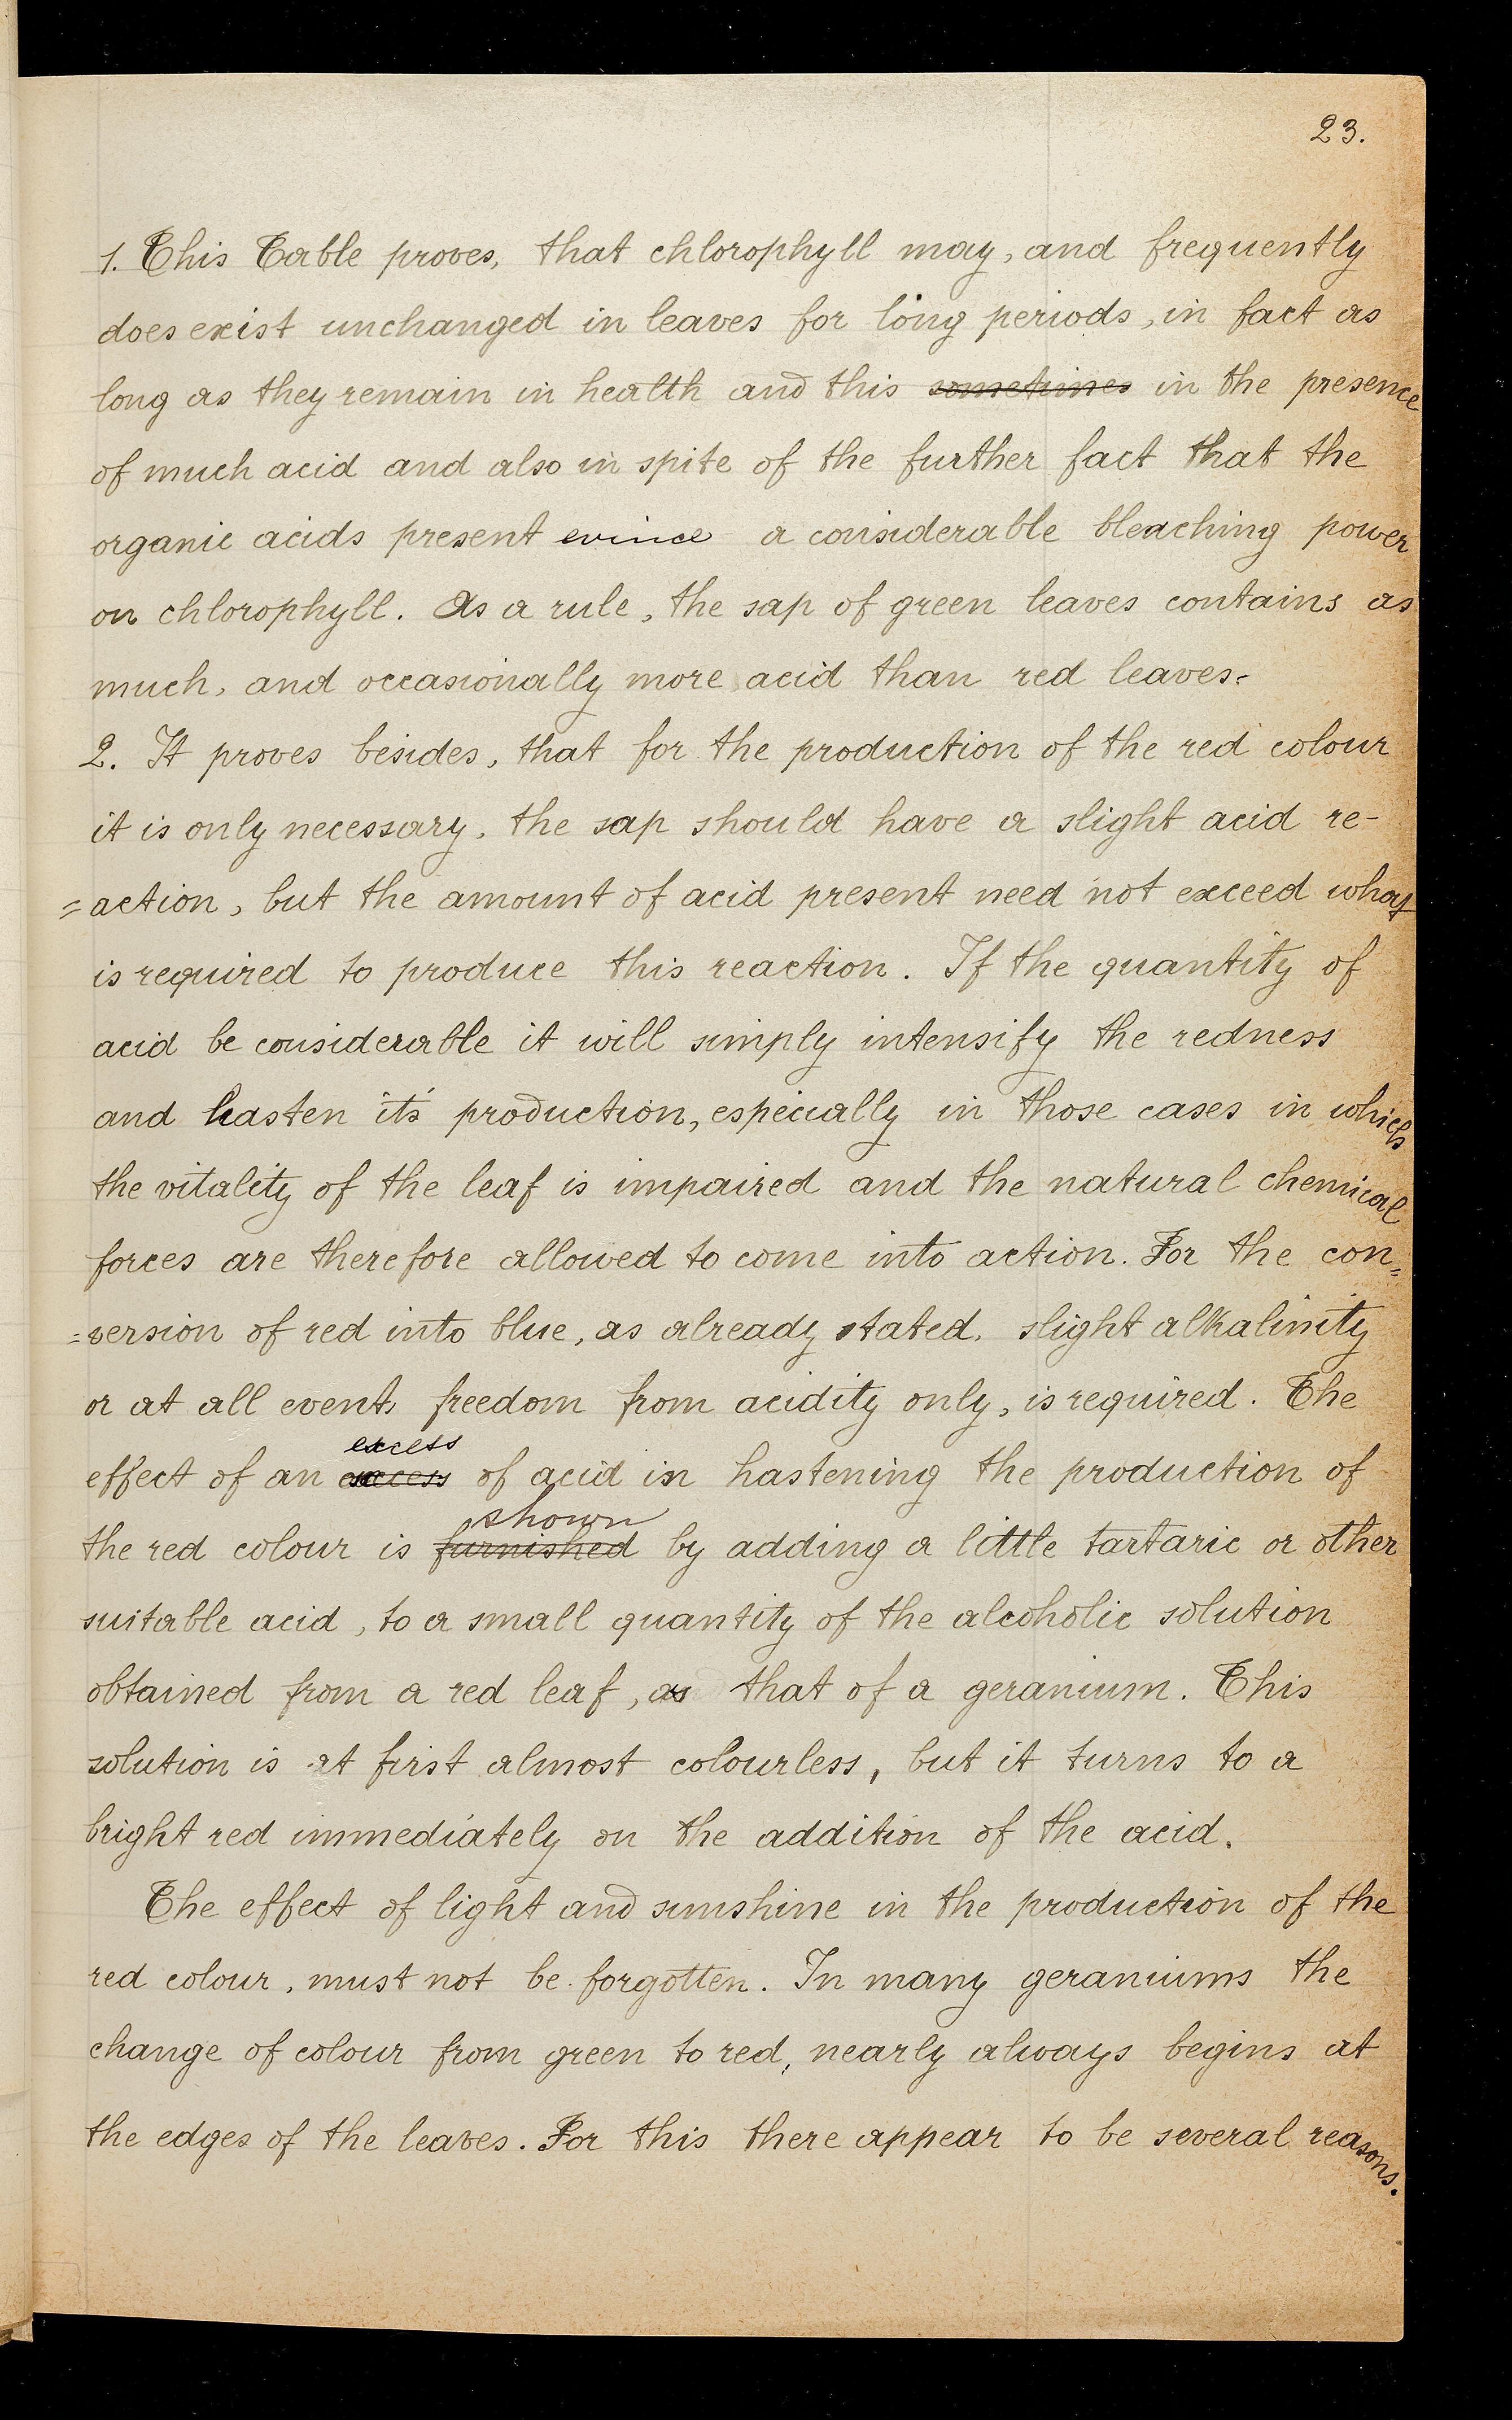 23.
1. This Table proves, that chlorophyll may, and frequently
does exist unchanged in leaves for long periods, in fact as
long as they remain in health and this sometimes in the presence
of much acid and also in spite of the further fact that the
organic acids present evince a considerable bleaching power
on chlorophyll. As a rule, the sap of green leaves contains as
much, and occasionally more acid than red leaves.
2. It proves besides, that for the production of the red colour
it is only necessary, the sap should have a slight acid re-
=action, but the amount of acid present need not exceed what
is required to produce this reaction. If the quantity of
acid be considerable it will simply intensify the redness
and hasten it's production, especially in those cases in which
the vitality of the leaf is impaired and the natural chemical
forces are therefore allowed to come into action. For the con=
=version of red into blue, as already stated, slight alkalinity
or at all events freedom from acidity only, is required. The
excess
effect of an excess of acid in hastening the production of
shown
the red colour is furnished by adding a little tartaric or other
suitable acid, to a small quantity of the alcoholic solution
obtained from a red leaf, as that of a geranium. This
solution is at first almost colourless, but it turns to a
bright red immediately on the addition of the acid.
The effect of light and sunshine in the production of the
red colour, must not be forgotten. In many geraniums the
change of colour from green to red, nearly always begins at
the edges of the leaves. For this there appear to be several reasons.